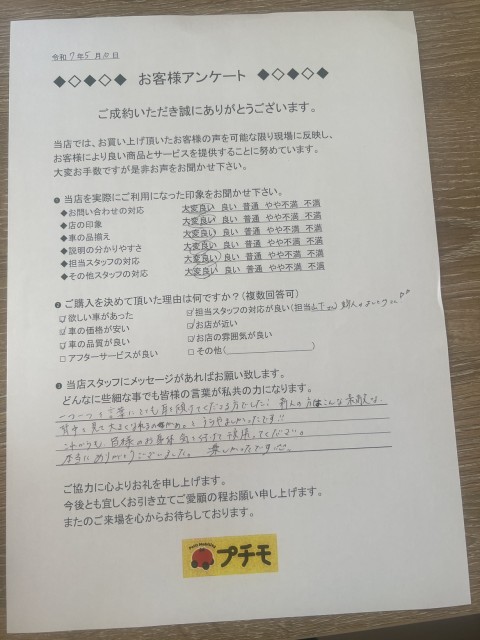 令和7年5月10日
◆◇◆◇◆ お客様アンケート ◆◇◆◇◆
ご成約いただき誠にありがとうございます。
当店では、お買い上げ頂いたお客様の声を可能な限り現場に反映し、
お客様により良い商品とサービスを提供することに努めています。
大変お手数ですが是非お声をお聞かせ下さい。
❶ 当店を実際にご利用になった印象をお聞かせ下さい。
◆お問い合わせの対応 大変良い 良い 普通 やや不満 不満
◆店の印象 大変良い 良い 普通 やや不満 不満
◆車の品揃え 大変良い 良い 普通 やや不満 不満
◆説明の分かりやすさ 大変良い 良い 普通 やや不満 不満
◆担当スタッフの対応 大変良い 良い 普通 やや不満 不満
◆その他スタッフの対応 大変良い 良い 普通 やや不満 不満
❷ ご購入を決めて頂いた理由は何ですか？(複数回答可)
☑欲しい車があった ☑担当スタッフの対応が良い(担当
☑車の価格が安い ☑お店が近い
☑車の品質が良い □お店の雰囲気が良い
□アフターサービスが良い □その他(　　　　　)
❸ 当店スタッフにメッセージがあればお願い致します。
どんなに些細な事でも皆様の言葉が私共の力になります。
一つ一つ言葉にとても耳を傾けてくださる方でした!
うらやましかったです!!
これからも、皆様のお身体気を付けて頑張ってください。
本当にありがとうございました。 楽しかったです
ご協力に心よりお礼を申し上げます。
今後とも宜しくお引き立てご愛顧の程お願い申し上げます。
またのご来場を心からお待ちしております。
Petit Mobilité
プチモ